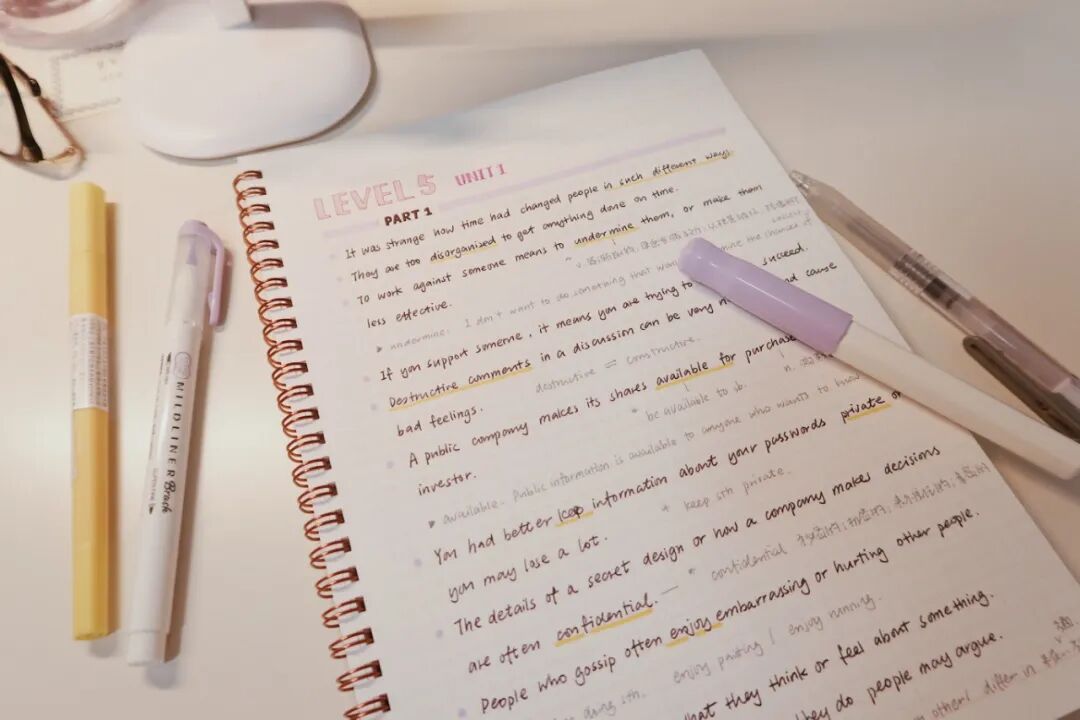 LEVEL 5 UNIT 1
PART 1
It was strange how time had changed people in such different ways.
They are too disorganized to get anything done on time.
To work against someone means to undermine them, or make them
less effective.
undermine: I don't want to do something that
If you support someone, it means you are trying to succeed.
Destructive comments in a discussion can be very and cause
bad feelings. destructive = constructive.
A public company makes its shares available for purchase
investor. * be available to sb. n.
available. Public information is available to anyone who wants to know
You had better keep information about your passwords private or
you may lose a lot. + keep sth private.
The details of a secret design or how a company makes decisions
are often confidential. * confidential
People who gossip often enjoy embarrassing or hurting other people.
doing sth. enjoy painting / enjoy running.
what they think or feel about something.
they do people may argue.
differ in
MILDLINER Brush